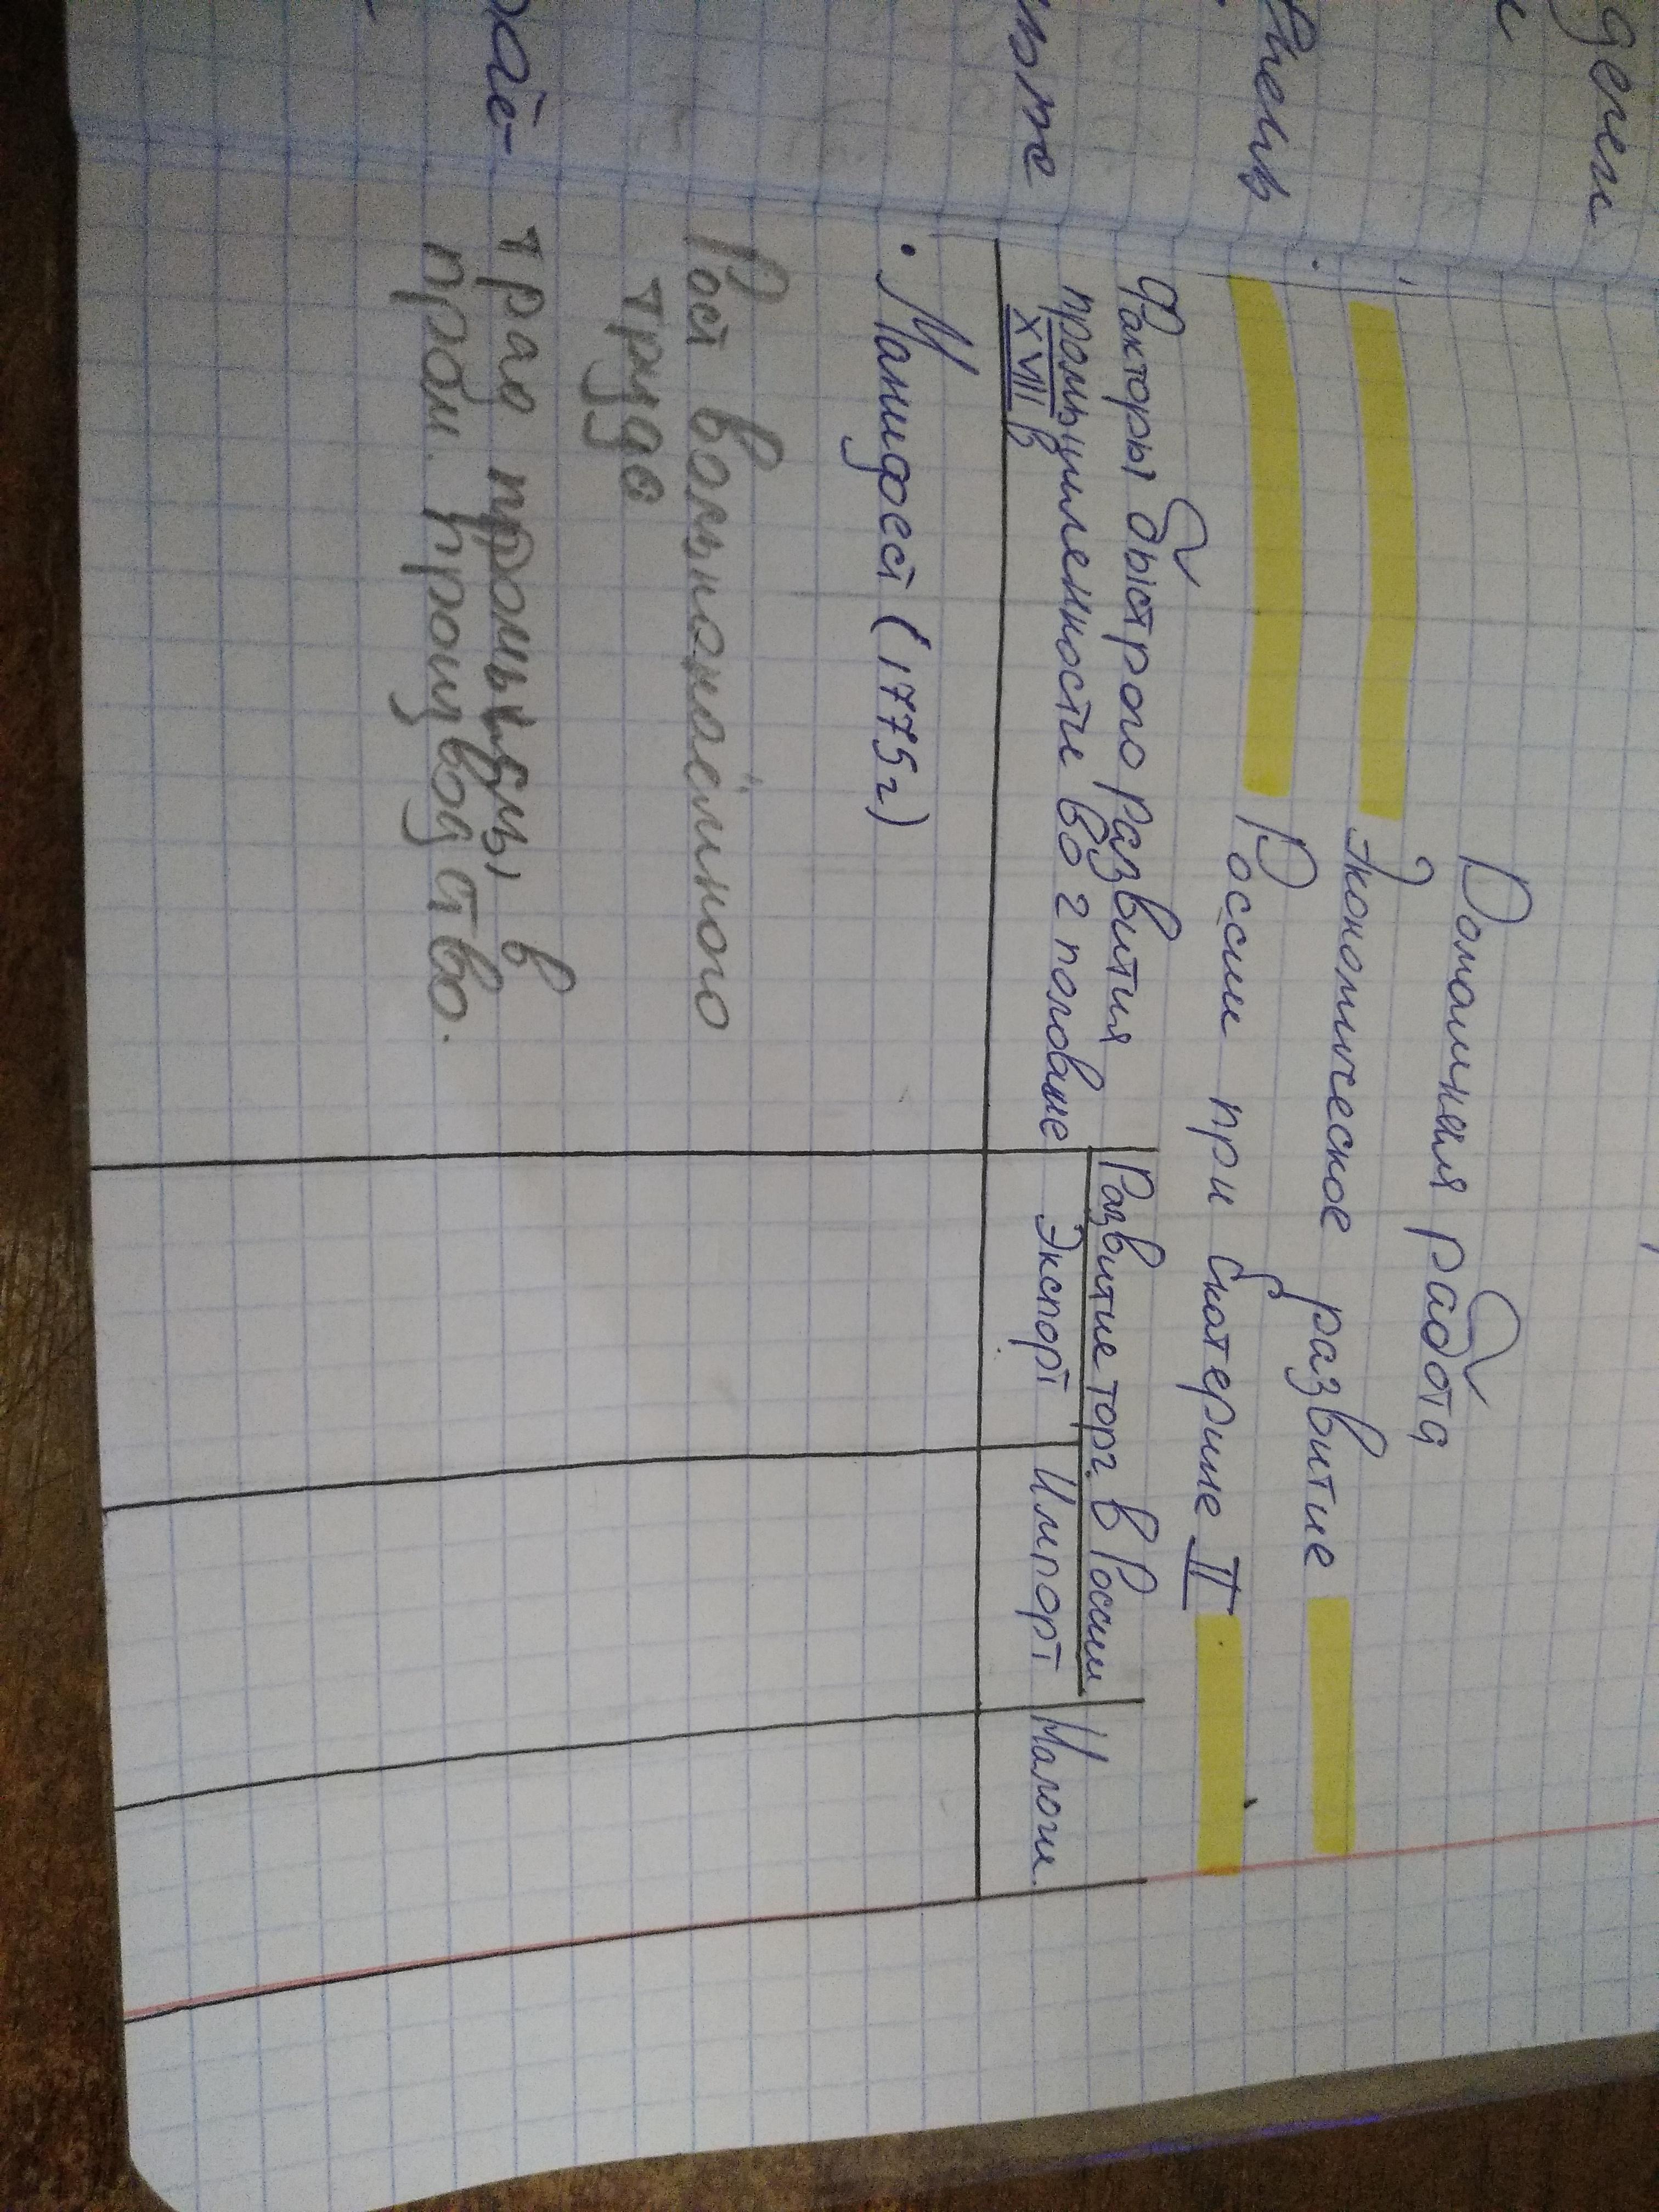 Домашняя работа
Экономическое развитие
России при Екатерине II
Факторы быстрого развития
промышленности во 2 половине
XVIII в
Развитие торг. в России
Экспорт
Импорт
Налоги.
• Манифест (1775г)
Рост вольнонаёмного
труда
промыслы, в
пром. производство.